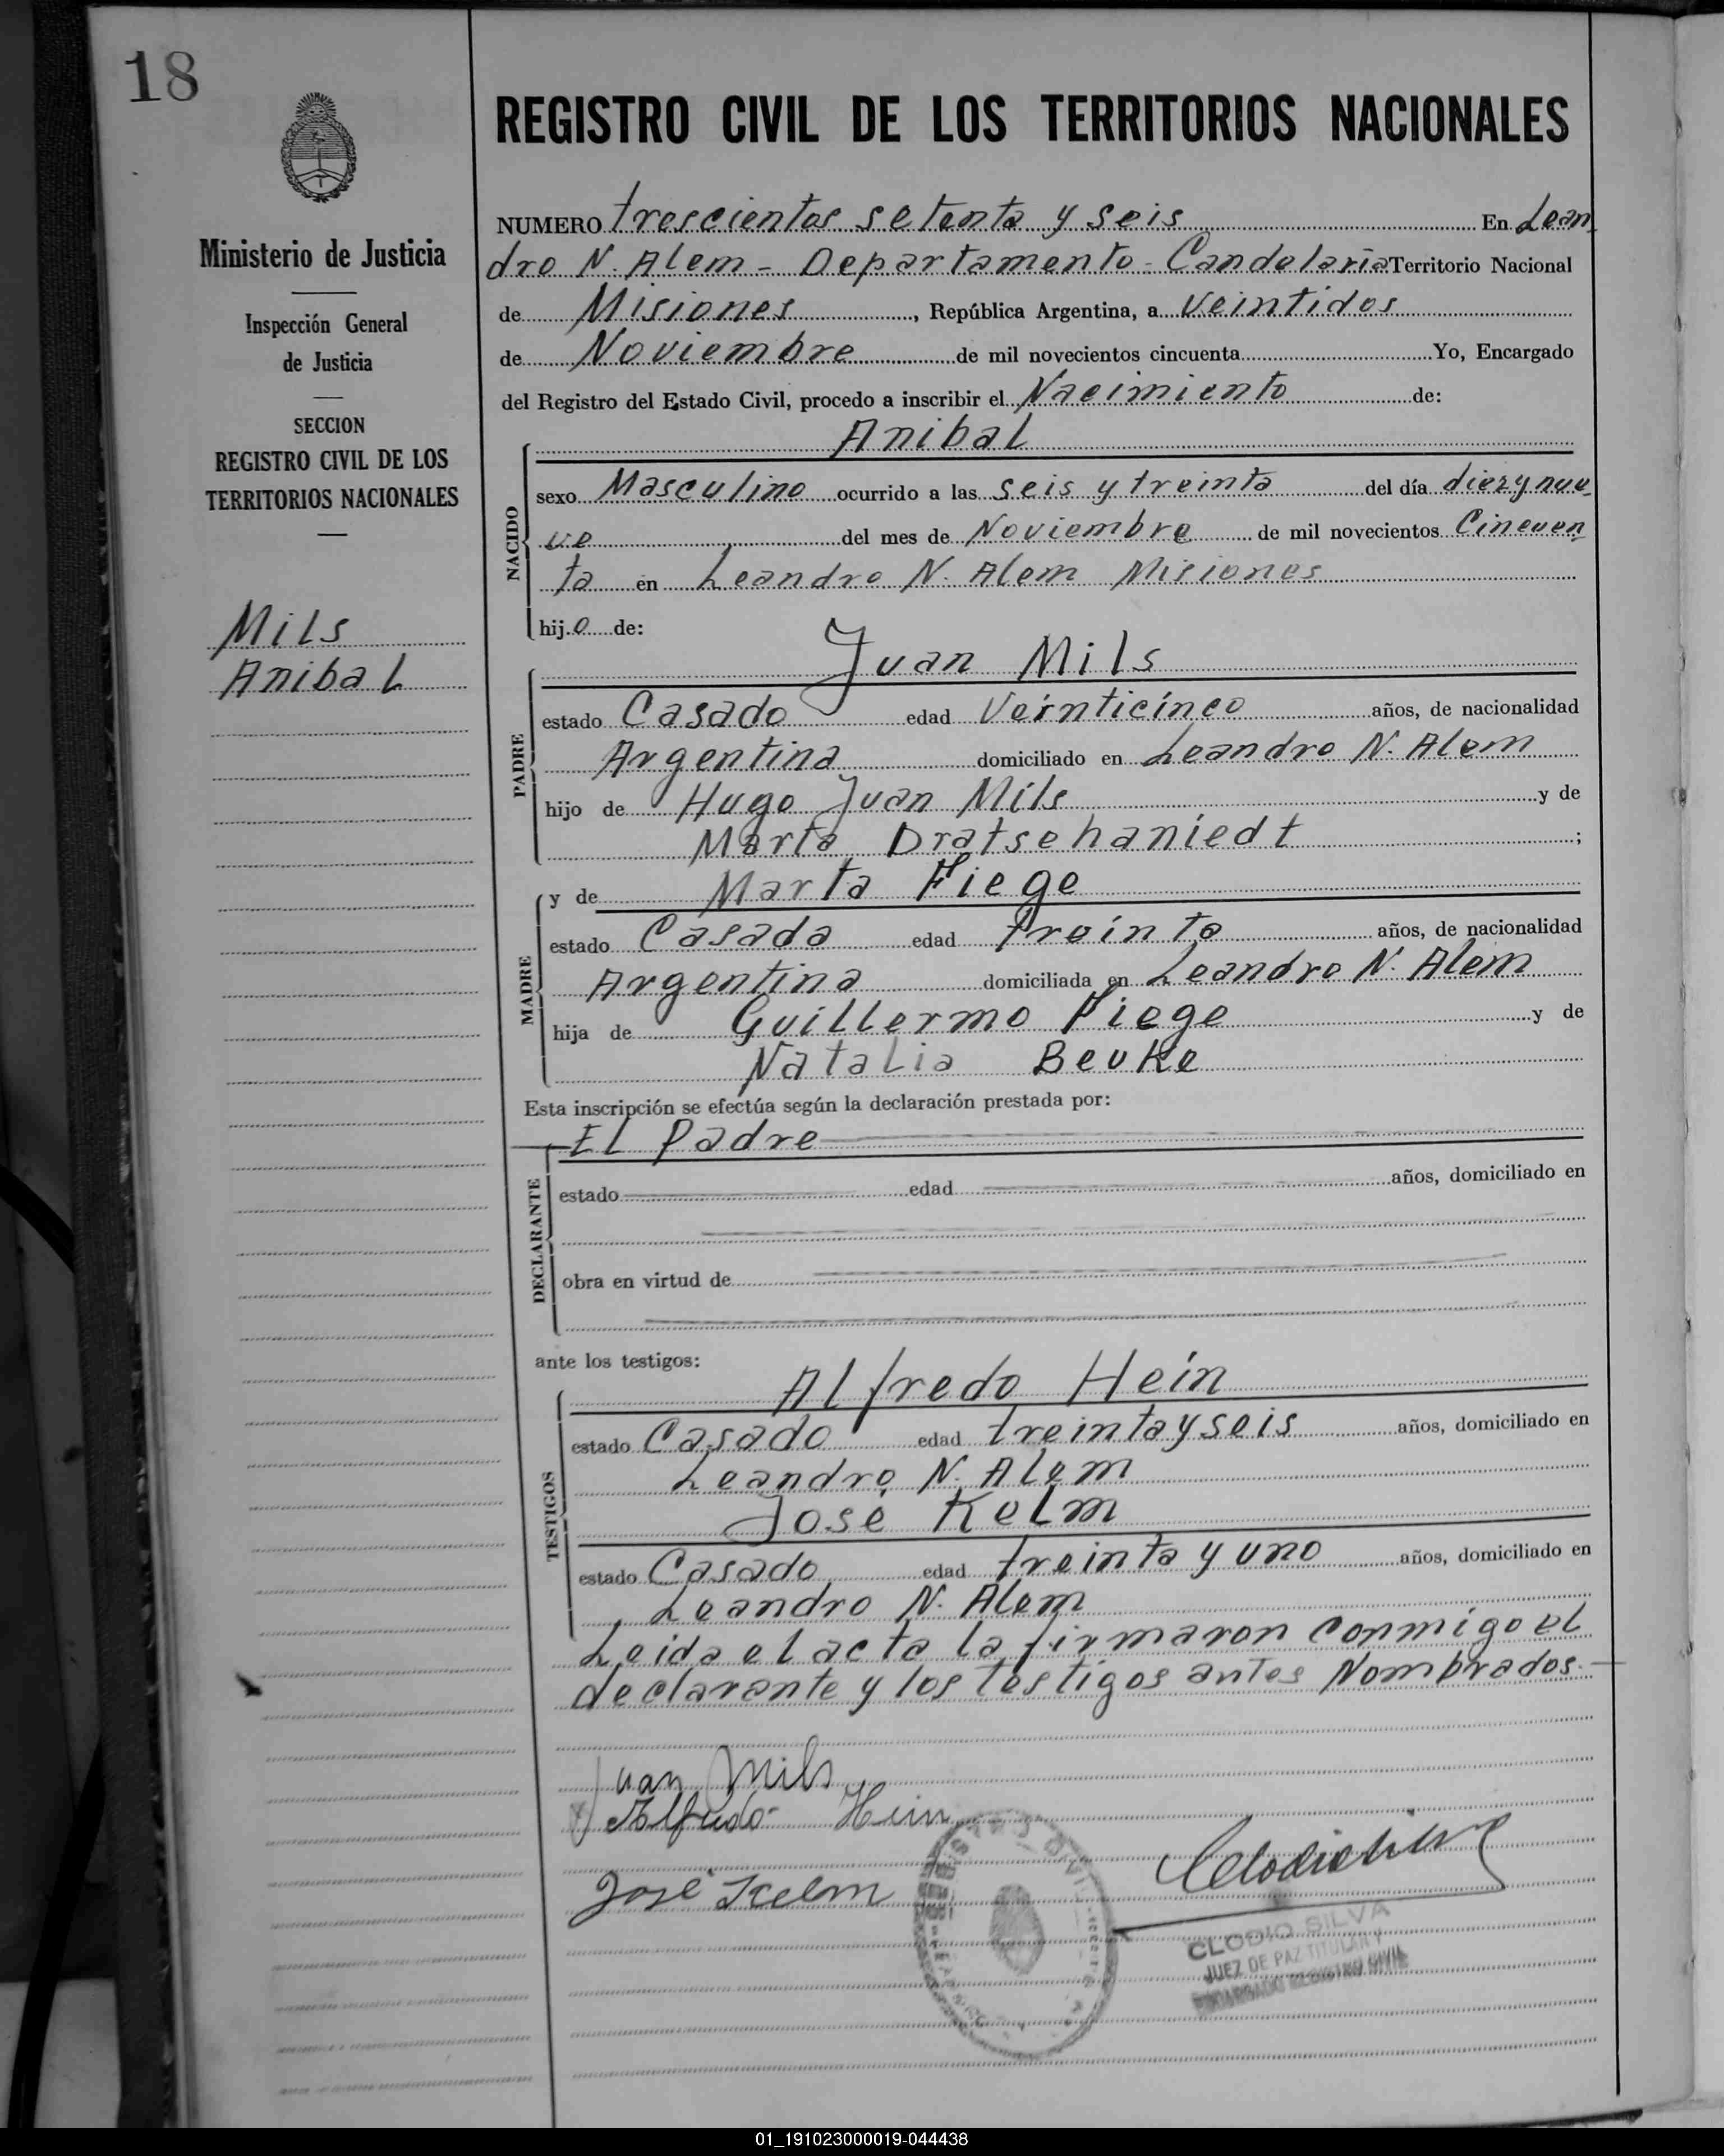 18
Ministerio de Justicia
Inspección General
de Justicia
SECCION
REGISTRO CIVIL DE LOS
TERRITORIOS NACIONALES
Mils
Anibal
REGISTRO CIVIL DE LOS TERRITORIOS NACIONALES
NUMERO trescientos setenta y seis En Lean
dro N. Alem - Departamento - Candelaria Territorio Nacional
de Misiones, República Argentina, a Veintidos
de Noviembre de mil novecientos cincuenta Yo, Encargado
del Registro del Estado Civil, procedo a inscribir el Nacimiento de:
Anibal
NACIDO
sexo Masculino ocurrido a las seis y treinta del día diez y nue
ve del mes de Noviembre de mil novecientos Cincuen
ta en Leandro N. Alem Misiones
hijo de:
Juan Mils
PADRE
estado Casado edad Veinticinco años, de nacionalidad
Argentina domiciliado en Leandro N. Alem
hijo de Hugo Juan Mils y de
Marta Dratschaniedt ;
MADRE
y de Marta Fiege
estado Casada edad treinta años, de nacionalidad
Argentina domiciliada en Leandro N. Alem
hija de Guillermo Fiege y de
Natalia Beuke
Esta inscripción se efectúa según la declaración prestada por:
El Padre
DECLARANTE
estado edad años, domiciliado en
obra en virtud de
ante los testigos:
Alfredo Hein
TESTIGOS
estado Casado edad treinta y seis años, domiciliado en
Leandro N. Alem
José Kelm
estado Casado edad treinta y uno años, domiciliado en
Leandro N. Alem
Leida el acta la firmaron conmigo el
declarante y los testigos antes Nombrados.
Juan Mils
Alfredo Hein
José Kelm
CLODIO SILVA
JUEZ DE PAZ TITULAR Y
ENCARGADO REGISTRO CIVIL
01_191023000019-044438